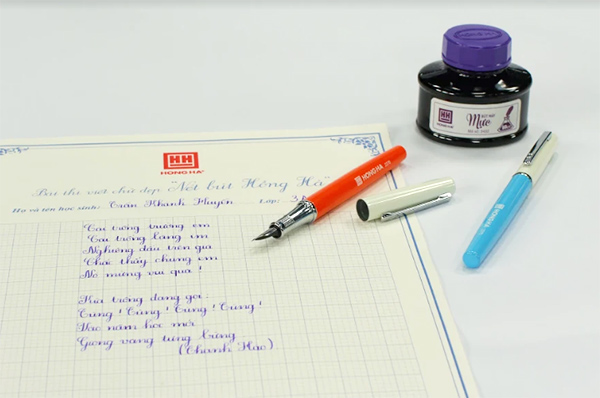 HH
HONG HA
Bài thi viết chữ đẹp "Nét bút Hồng Hà"
Họ và tên học sinh: Trần Khánh Huyền Lớp: 3
Cái trống trường em
Cái trống lặng im
Nghiêng đầu trên giá
Chắc thấy chúng em
Nó mừng vui quá !
Kìa trống đang gọi:
Tùng! Tùng! Tùng! Tùng!
Vào năm học mới
Giọng vang tưng bừng
(Thanh Hào)
HONG HA
HONG HA
HH
HONG HA
BÚT MÁY
Mực